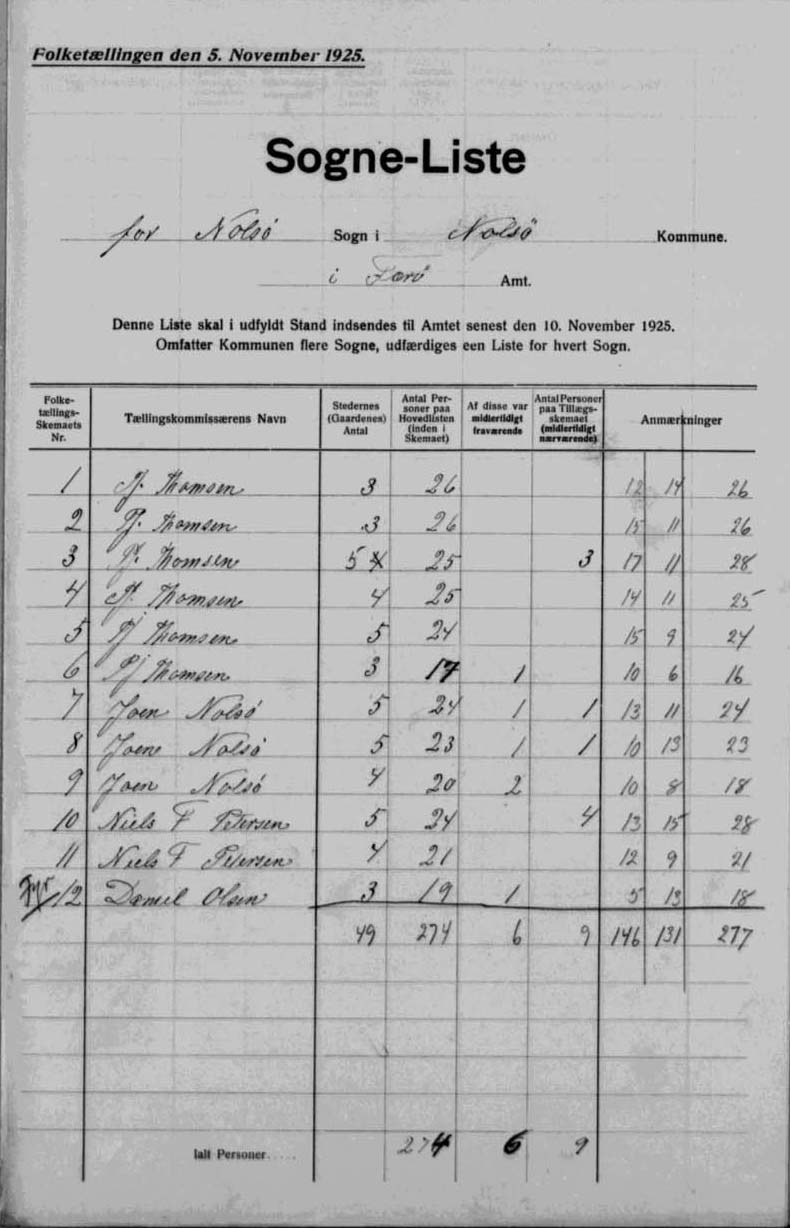 Folketællingen den 5. November 1925.
Sogne-Liste
for Nolsö Sogn i Nolsö Kommune.
i Færö Amt.
Denne Liste skal i udfyldt Stand indsendes til Amtet senest den 10. November 1925.
Omfatter Kommunen flere Sogne, udfærdiges een Liste for hvert Sogn.
Folketællings-Skemaets Nr. Tællingskommissærens Navn Stedernes (Gaardenes) Antal Antal Personer paa Hovedlisten (inden i Skemaet) Af disse var midlertidigt fraværende Antal Personer paa Tillægsskemaet (midlertidigt nærværende) Anmærkninger
1 Thomsen 3 26 12 14 26
2 Thomsen 3 26 15 11 26
3 Thomsen 5 25 3 17 11 28
4 Thomsen 4 25 14 11 25
5 Thomsen 5 24 15 9 24
6 Thomsen 3 17 1 10 6 16
7 Joen Nolsö 5 24 1 1 13 11 24
8 Joen Nolsö 5 23 1 1 10 13 23
9 Joen Nolsö 4 20 2 10 8 18
10 Niels F Petersen 5 24 4 13 15 28
11 Niels F Petersen 4 21 12 9 21
12 Daniel Olsen 3 19 1 5 13 18
49 274 6 9 146 131 277
Ialt Personer 274 6 9